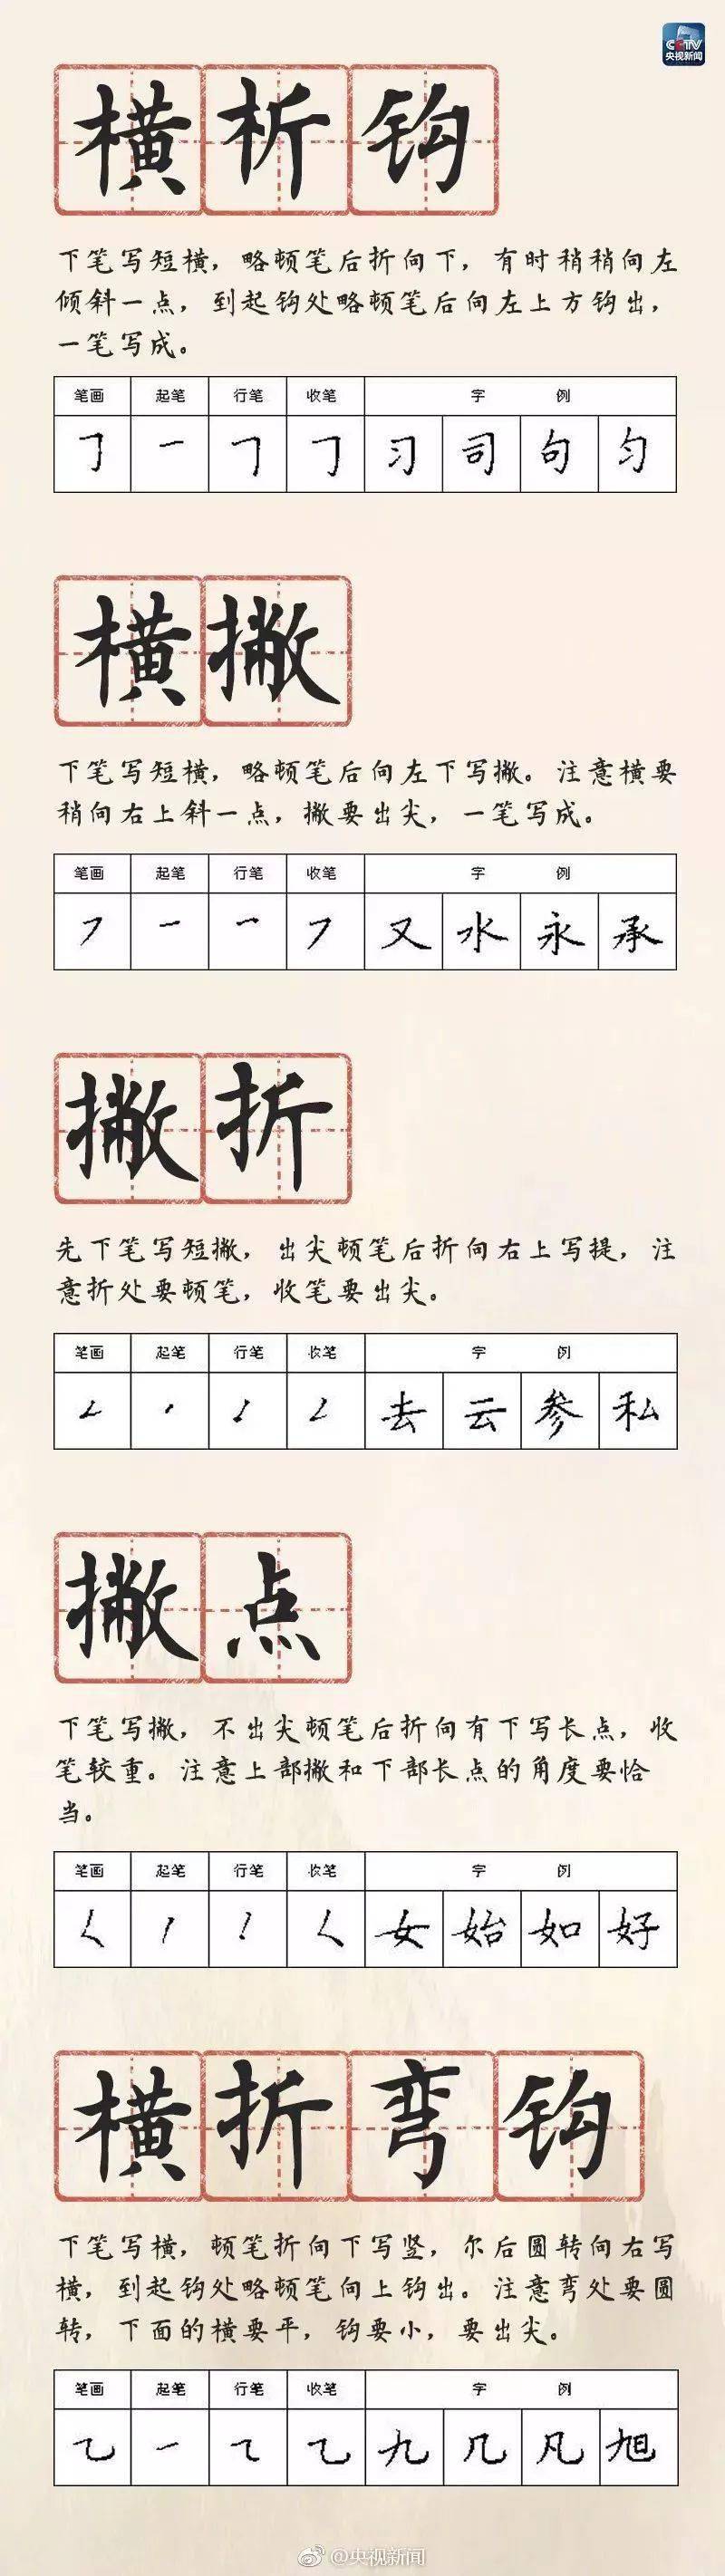 CCTV
央视新闻
横析钩
下笔写短横，略顿笔后折向下，有时稍稍向左
倾斜一点，到起钩处略顿笔后向左上方钩出，
一笔写成。
笔画 起笔 行笔 收笔 字 例
㇆ 一 ㇆ ㇆ 习 司 句 匀
横撇
下笔写短横，略顿笔后向左下写撇。注意横要
稍向右上斜一点，撇要出尖，一笔写成。
笔画 起笔 行笔 收笔 字 例
㇇ 一 ㇇ 又 水 永 承
撇折
先下笔写短撇，出尖顿笔后折向右上写提，注
意折处要顿笔，收笔要出尖。
笔画 起笔 行笔 收笔 字 例
㇜ ㇜ 去 云 参 私
撇点
下笔写撇，不出尖顿笔后折向有下写长点，收
笔较重。注意上部撇和下部长点的角度要恰
当。
笔画 起笔 行笔 收笔 字 例
㇛ ㇛ 女 始 如 好
横折弯钩
下笔写横，顿笔折向下写竖，尔后圆转向右写
横，到起钩处略顿笔向上钩出。注意弯处要圆
转，下面的横要平，钩要小，要出尖。
笔画 起笔 行笔 收笔 字 例
㇈ 一 ㇈ 九 几 凡 旭
@央视新闻